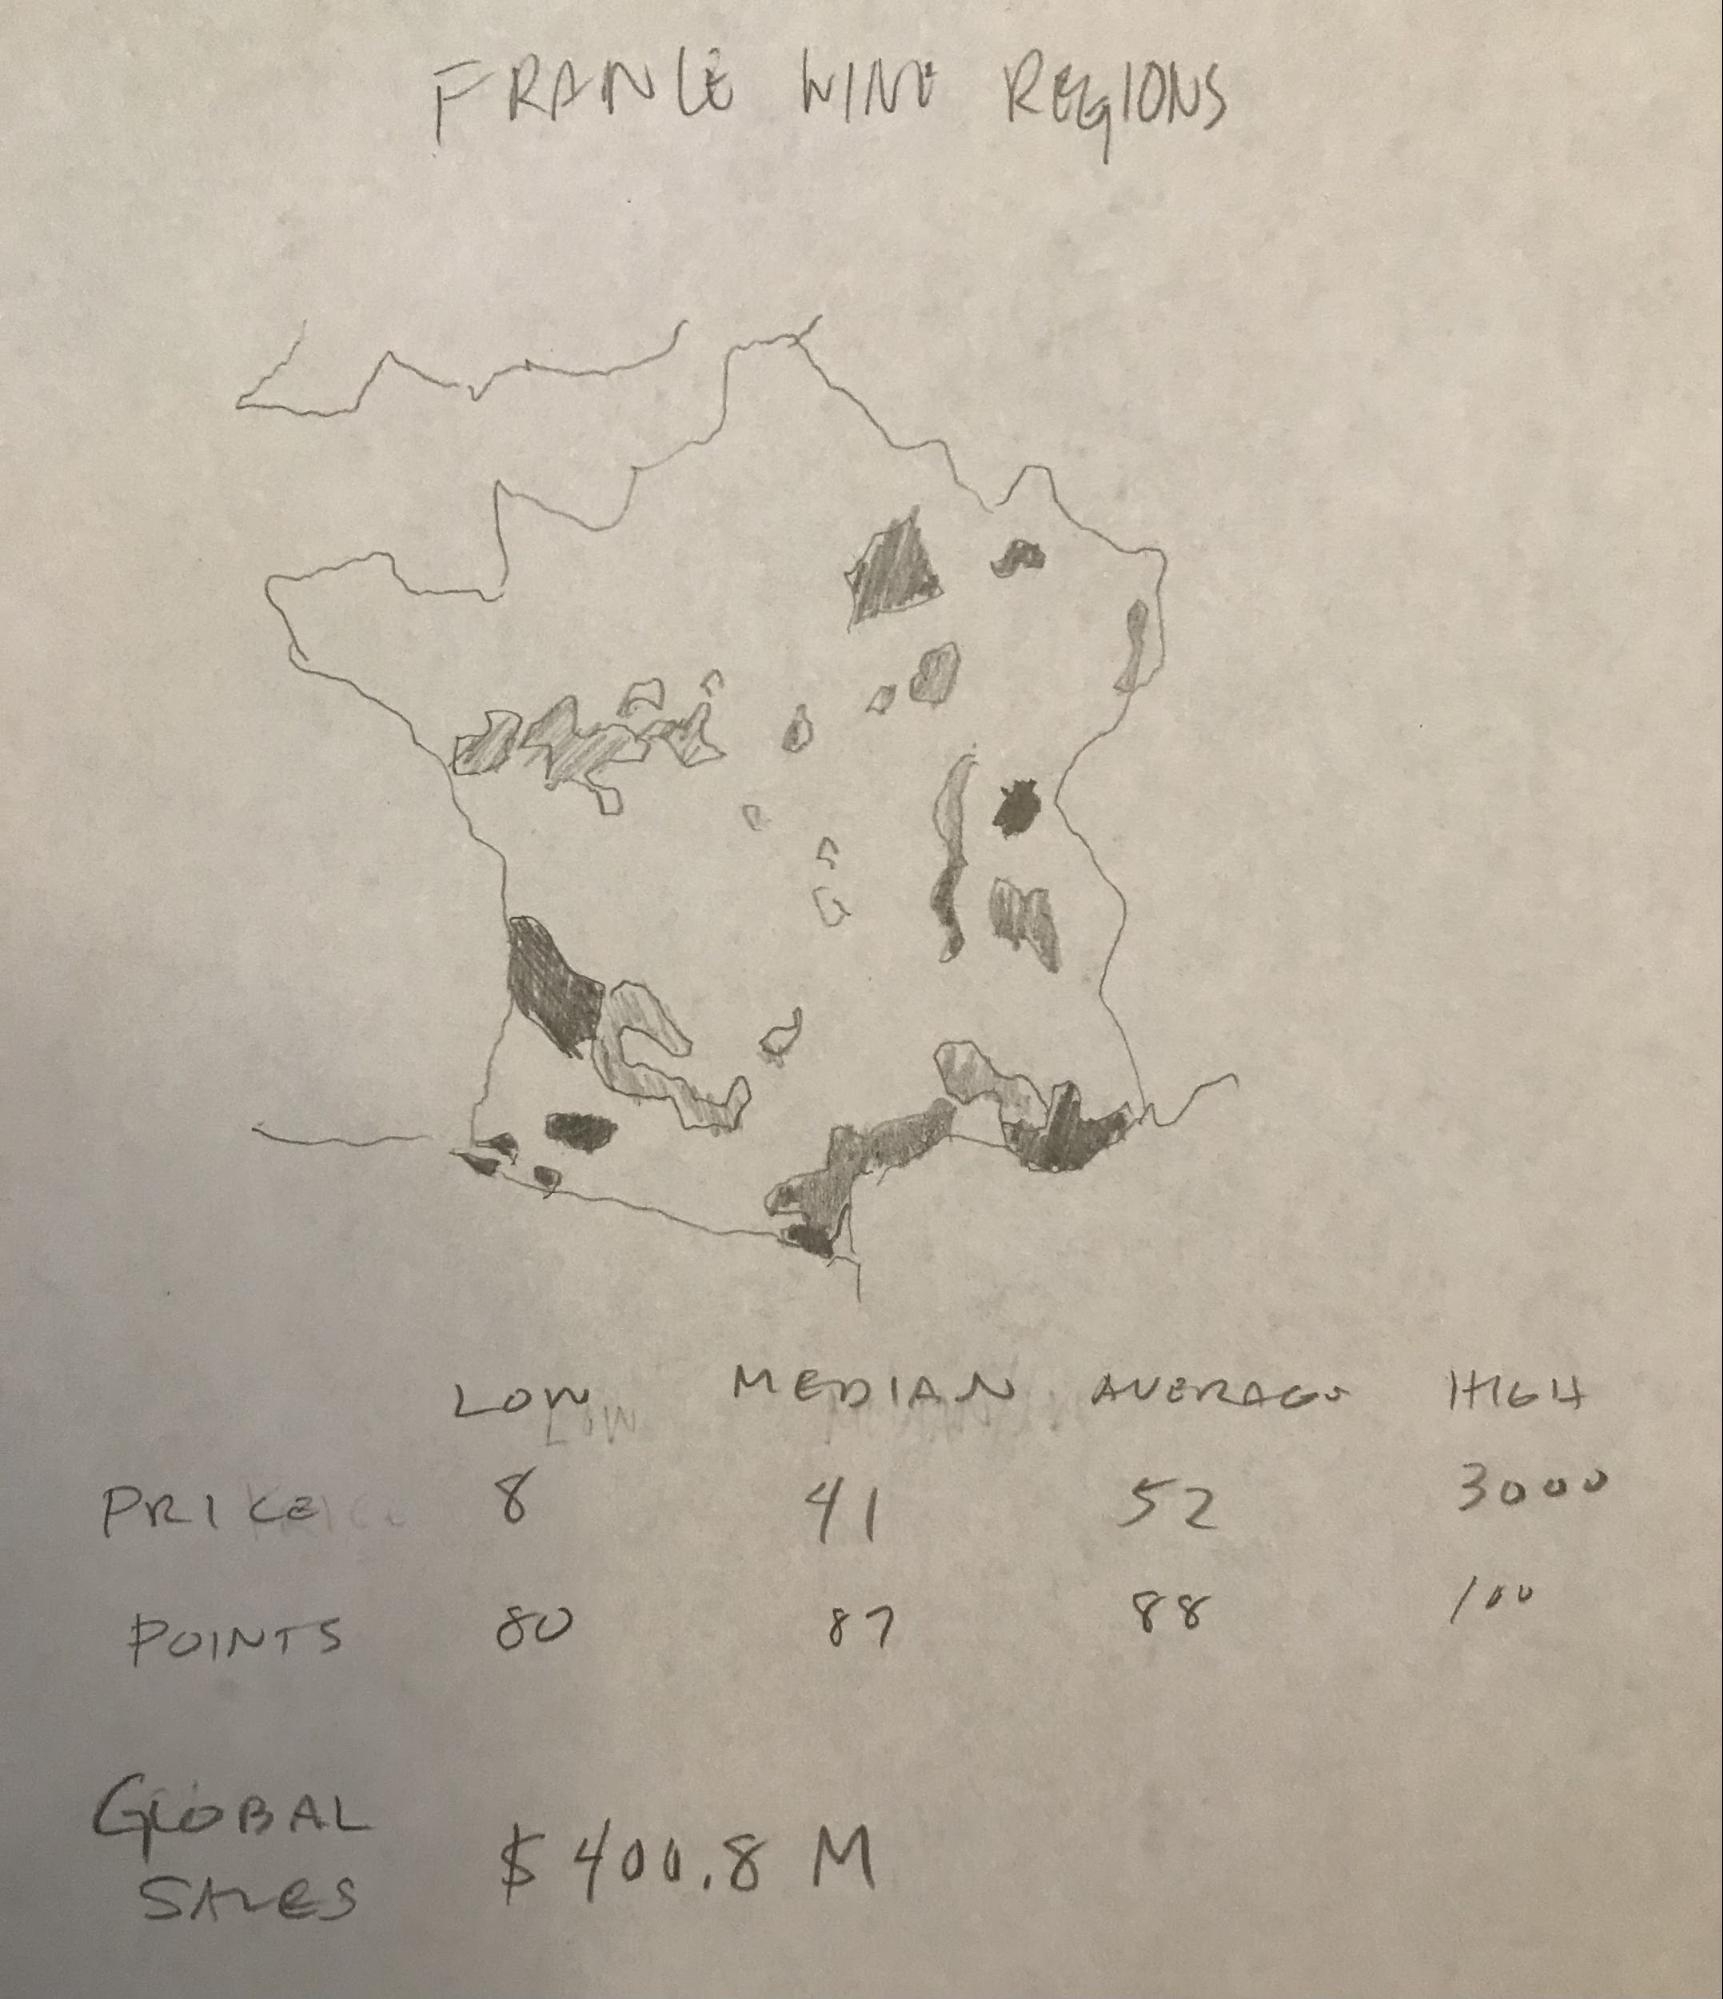 FRANCE WINE REGIONS
LOW MEDIAN AVERAGE HIGH
LOW
PRICE 8 41 52 3000
POINTS 80 87 88 100
GLOBAL
SALES
$400.8 M